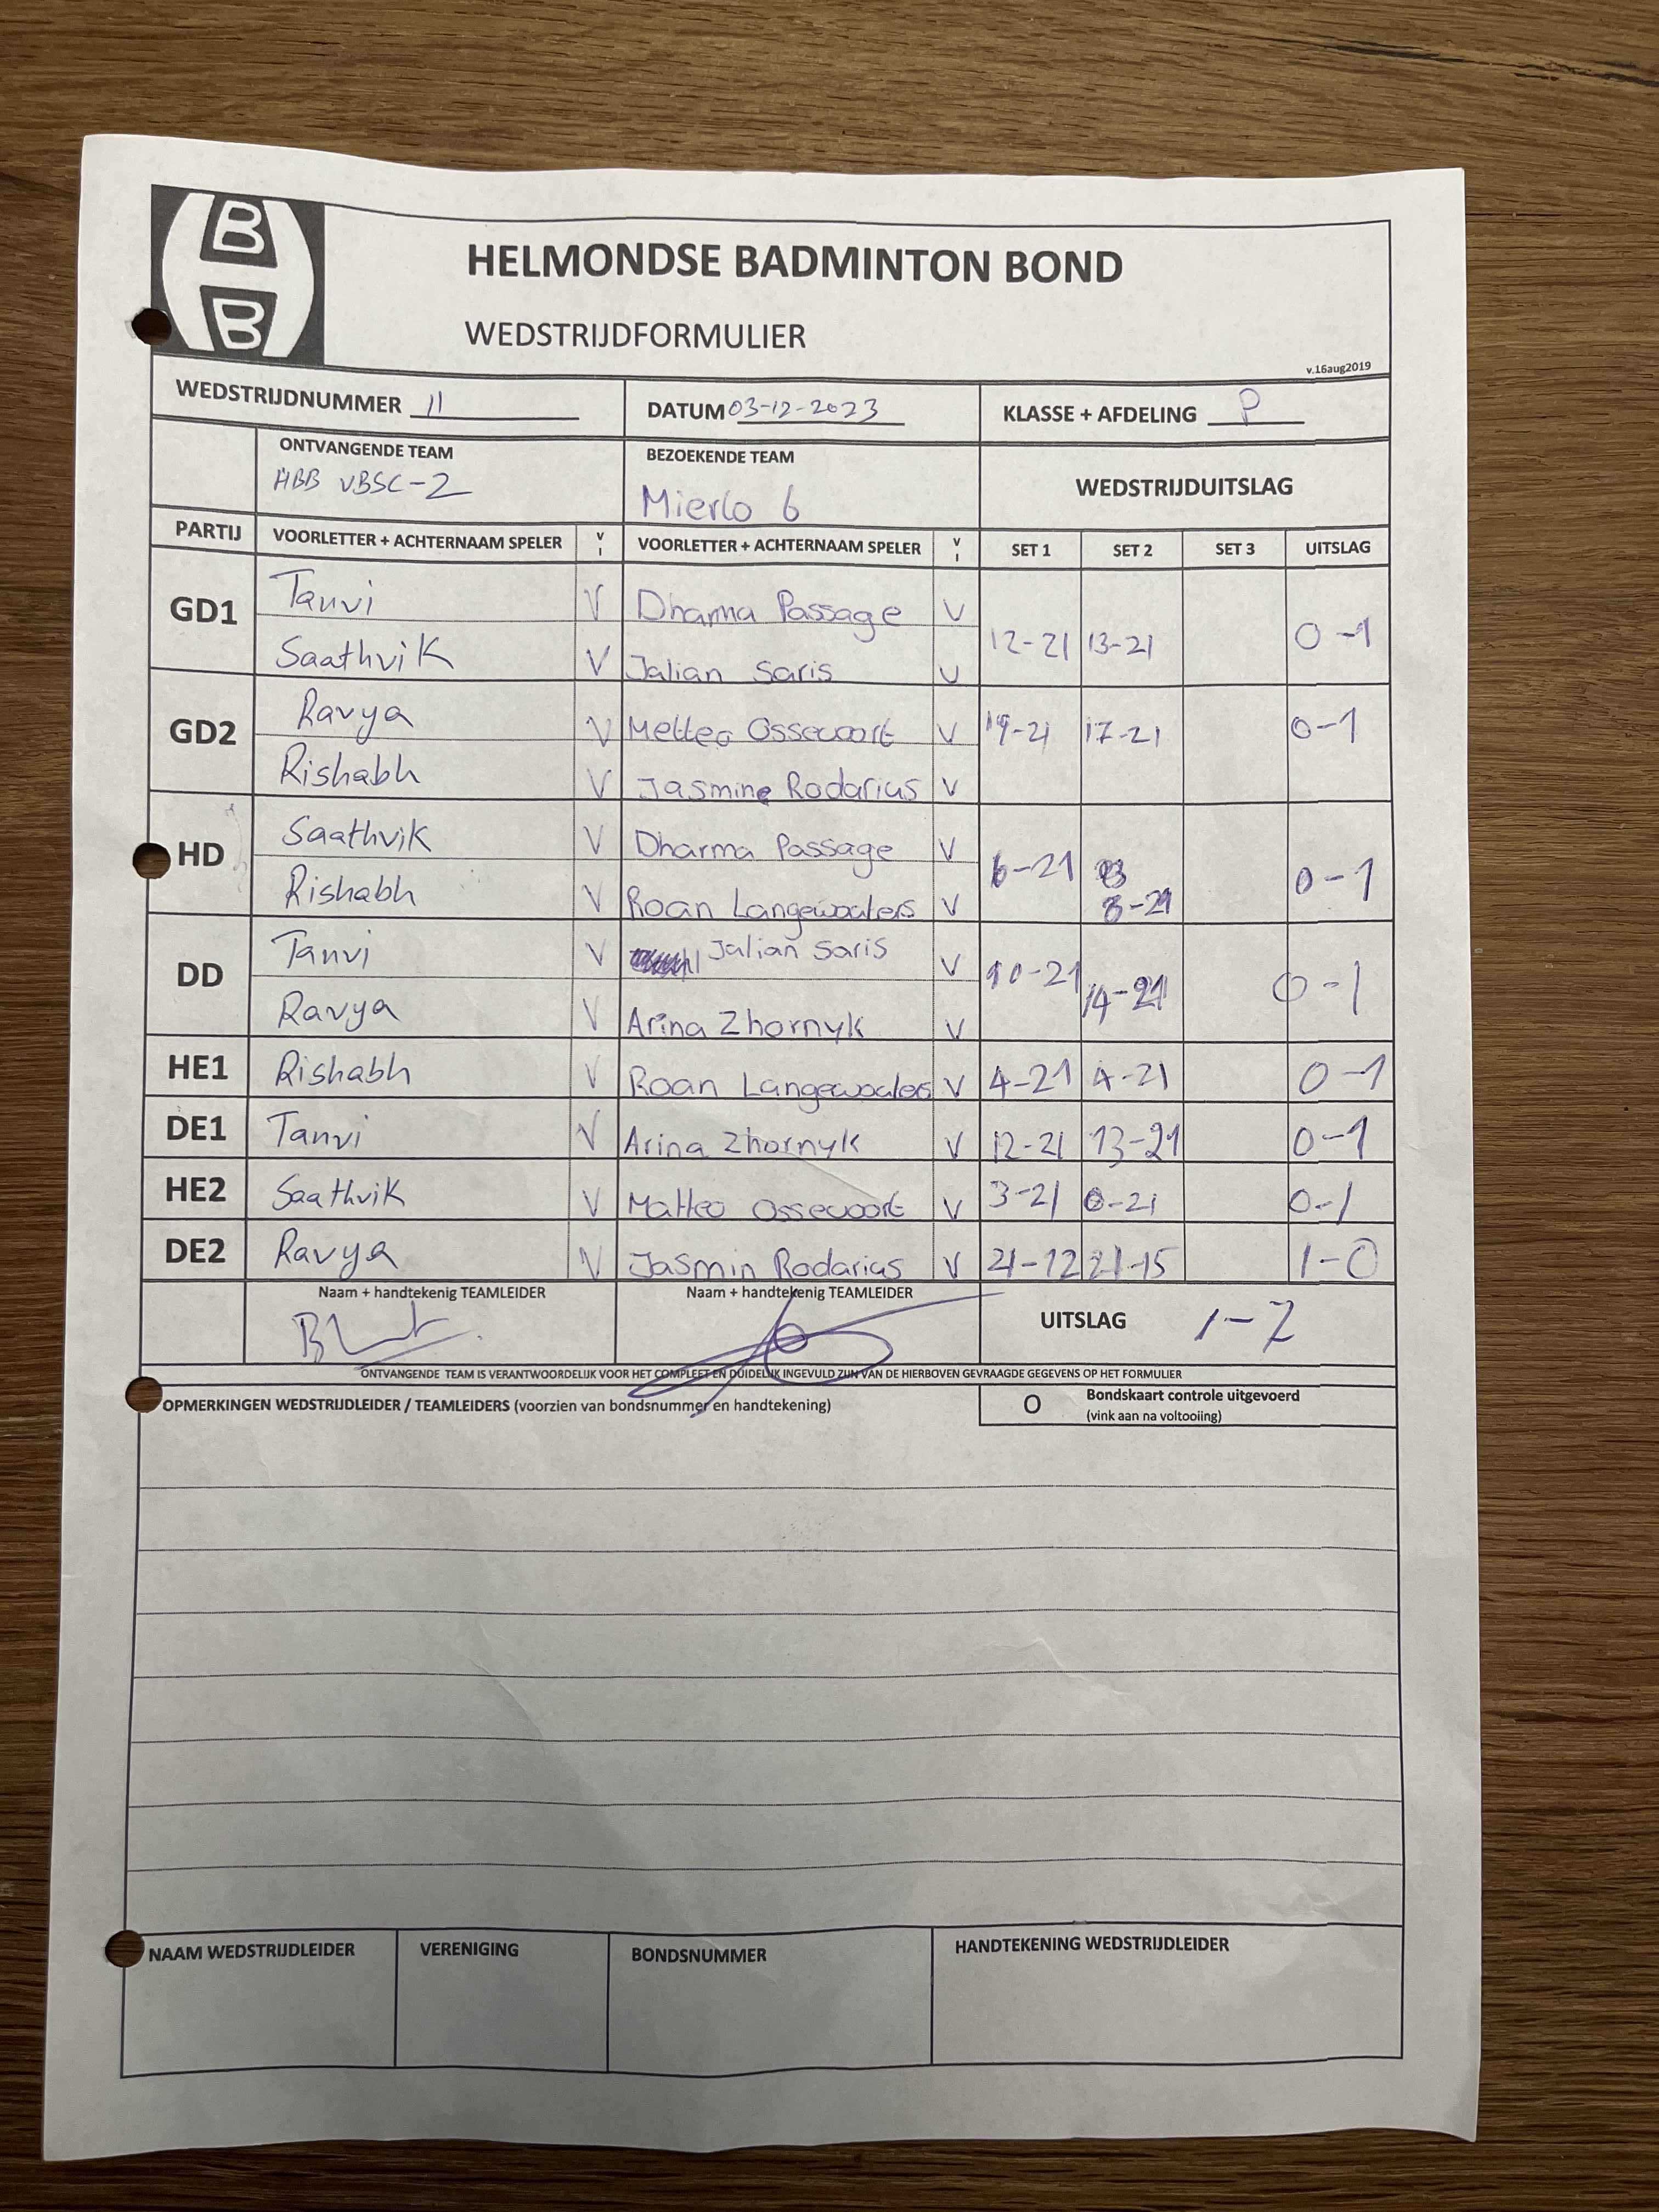 B
B
HELMONDSE BADMINTON BOND
WEDSTRIJDFORMULIER
v.16aug2019
WEDSTRIJDNUMMER 11 DATUM 03-12-2023 KLASSE + AFDELING P
ONTVANGENDE TEAM BEZOEKENDE TEAM
HBB VBSC-2 Mierlo 6 WEDSTRIJDUITSLAG
PARTIJ VOORLETTER + ACHTERNAAM SPELER V I VOORLETTER + ACHTERNAAM SPELER V I SET 1 SET 2 SET 3 UITSLAG
GD1 Tanvi V Dharma Passage V
Saathvik V Jalian Saris V 12-21 13-21 0-1
GD2 Ravya V Metteo Ossevoort V 19-21 17-21 0-1
Rishabh V Jasmine Rodarius V
HD Saathvik V Dharma Passage V 6-21 0-1
Rishabh V Roan Langewouters V 8-21
DD Tanvi V Julian Saris V 10-21 0-1
Ravya V Arina Zhornyk V 14-21
HE1 Rishabh V Roan Langewouters V 4-21 4-21 0-1
DE1 Tanvi V Arina Zhornyk V 12-21 13-21 0-1
HE2 Saathvik V Matteo Ossevoort V 3-21 0-21 0-1
DE2 Ravya V Jasmin Rodarius V 21-12 21-15 1-0
Naam + handtekenig TEAMLEIDER Naam + handtekenig TEAMLEIDER
UITSLAG 1-7
ONTVANGENDE TEAM IS VERANTWOORDELIJK VOOR HET COMPLEET EN DUIDELIJK INGEVULD ZIJN VAN DE HIERBOVEN GEVRAAGDE GEGEVENS OP HET FORMULIER
OPMERKINGEN WEDSTRIJDLEIDER / TEAMLEIDERS (voorzien van bondsnummer en handtekening) O Bondskaart controle uitgevoerd
(vink aan na voltooiing)
NAAM WEDSTRIJDLEIDER VERENIGING BONDSNUMMER HANDTEKENING WEDSTRIJDLEIDER